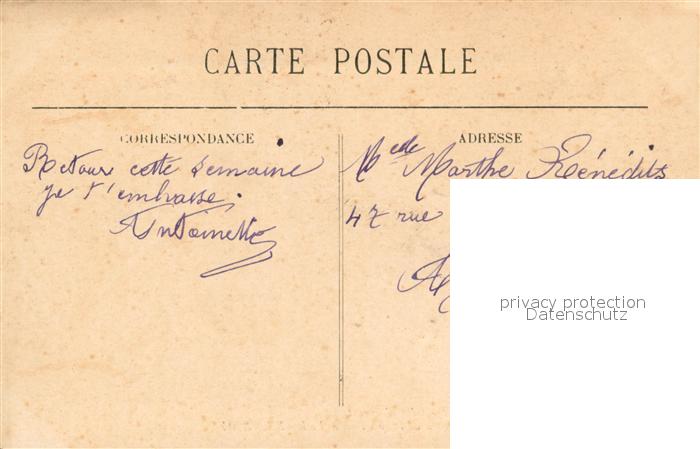 CARTE POSTALE
CORRESPONDANCE
ADRESSE
Retour cette semaine
je t'embrasse.
Antoinette
Melle Marthe Bénédits
47 rue
privacy protection
Datenschutz